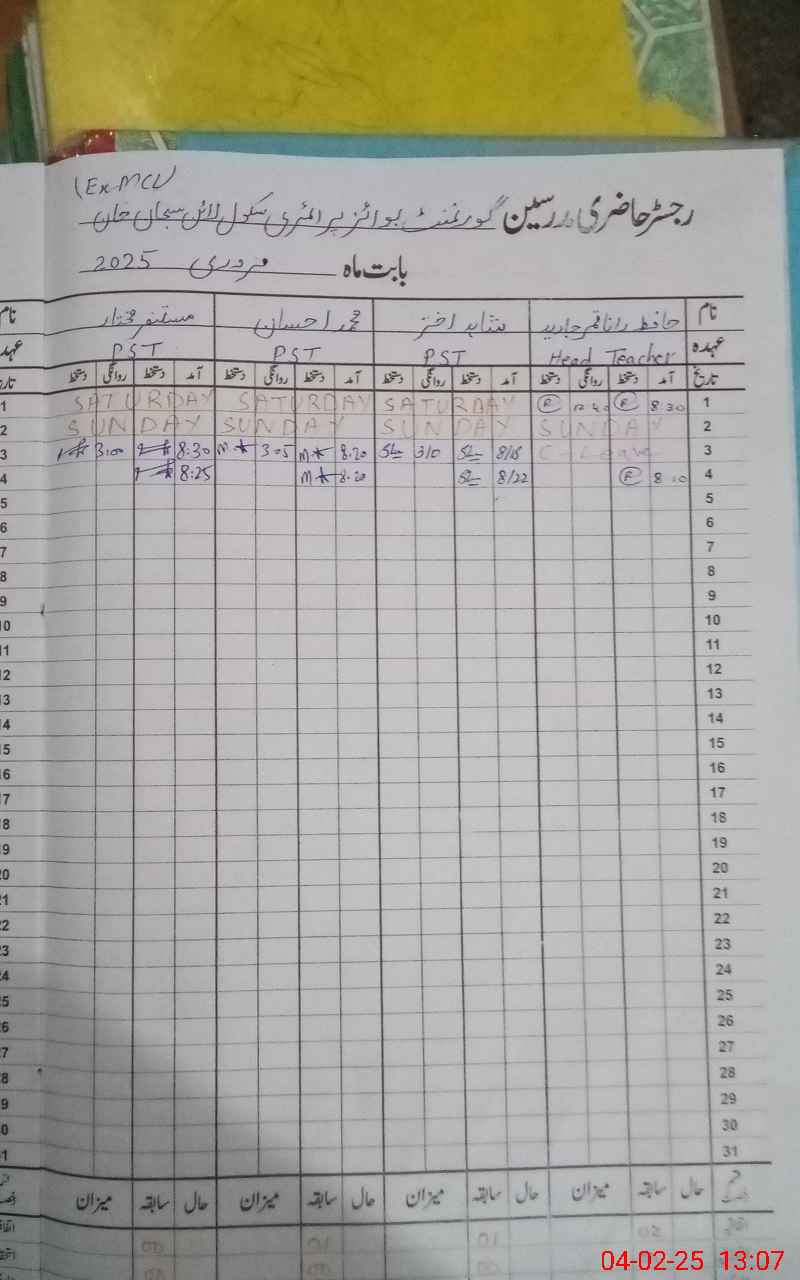 (Ex MCL)
رجسٹر حاضری مدرسین گورنمنٹ بوائز پرائمری سکول لائن سبحان خان
بابت ماہ فروری 2025
نام حافظ رانا قمر جاوید شاہد اختر محمد احسان
عہدہ Head Teacher PST PST PST
تاریخ آمد دستخط روانگی دستخط آمد دستخط روانگی دستخط آمد دستخط روانگی دستخط آمد دستخط روانگی دستخط
1 8 30 SATURDAY SATURDAY SATURDAY
2 SUNDAY SUNDAY SUNDAY SUNDAY
3 C-Leave 8/15 3/0 8.20 3.05 8:30 3:00
4 8.10 8/22 8.20 8:25
5
6
7
8
9
10
11
12
13
14
15
16
17
18
19
20
21
22
23
24
25
26
27
28
29
30
31
حال سابقہ میزان حال سابقہ میزان حال سابقہ میزان حال سابقہ میزان
04-02-25 13:07